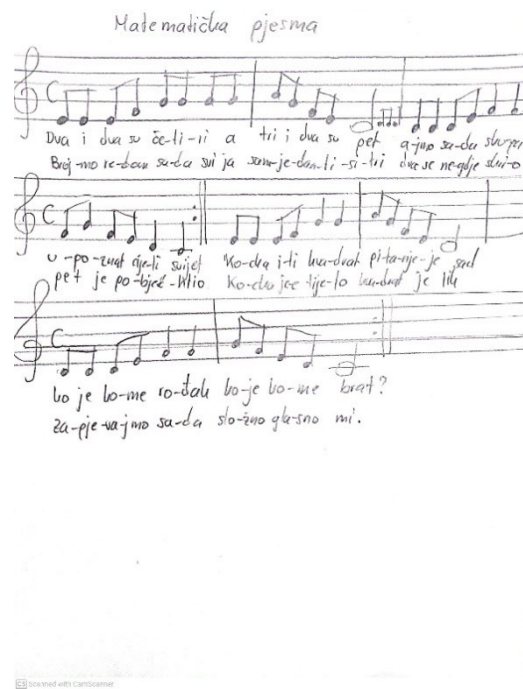 Matematička pjesma
Dva i dva su če-ti-ri a tri i dva su pet a-jmo sa-da sku-pa
Broj-mo re-dom sa-da svi ja sam je-dan ti si tri dva se ne-gdje skri-o
u-po-znat cije-li svijet Ko-cka i-li kva-drat pi-ta-nje je sad
pet je po-bjeg-
ko je ko-me ro-đak ko-je ko-me brat?
Za-pje-va-jmo sa-da slo-žno gla-sno mi.
CS Scanned with CamScanner